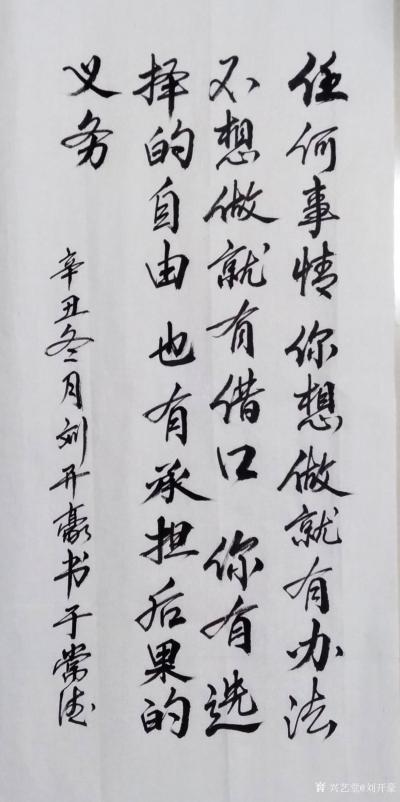 任何事情你想做就有办法
不想做就有借口你有选
择的自由也有承担后果的
义务
辛丑冬月刘开豪书于常德
兴艺堂@刘开豪